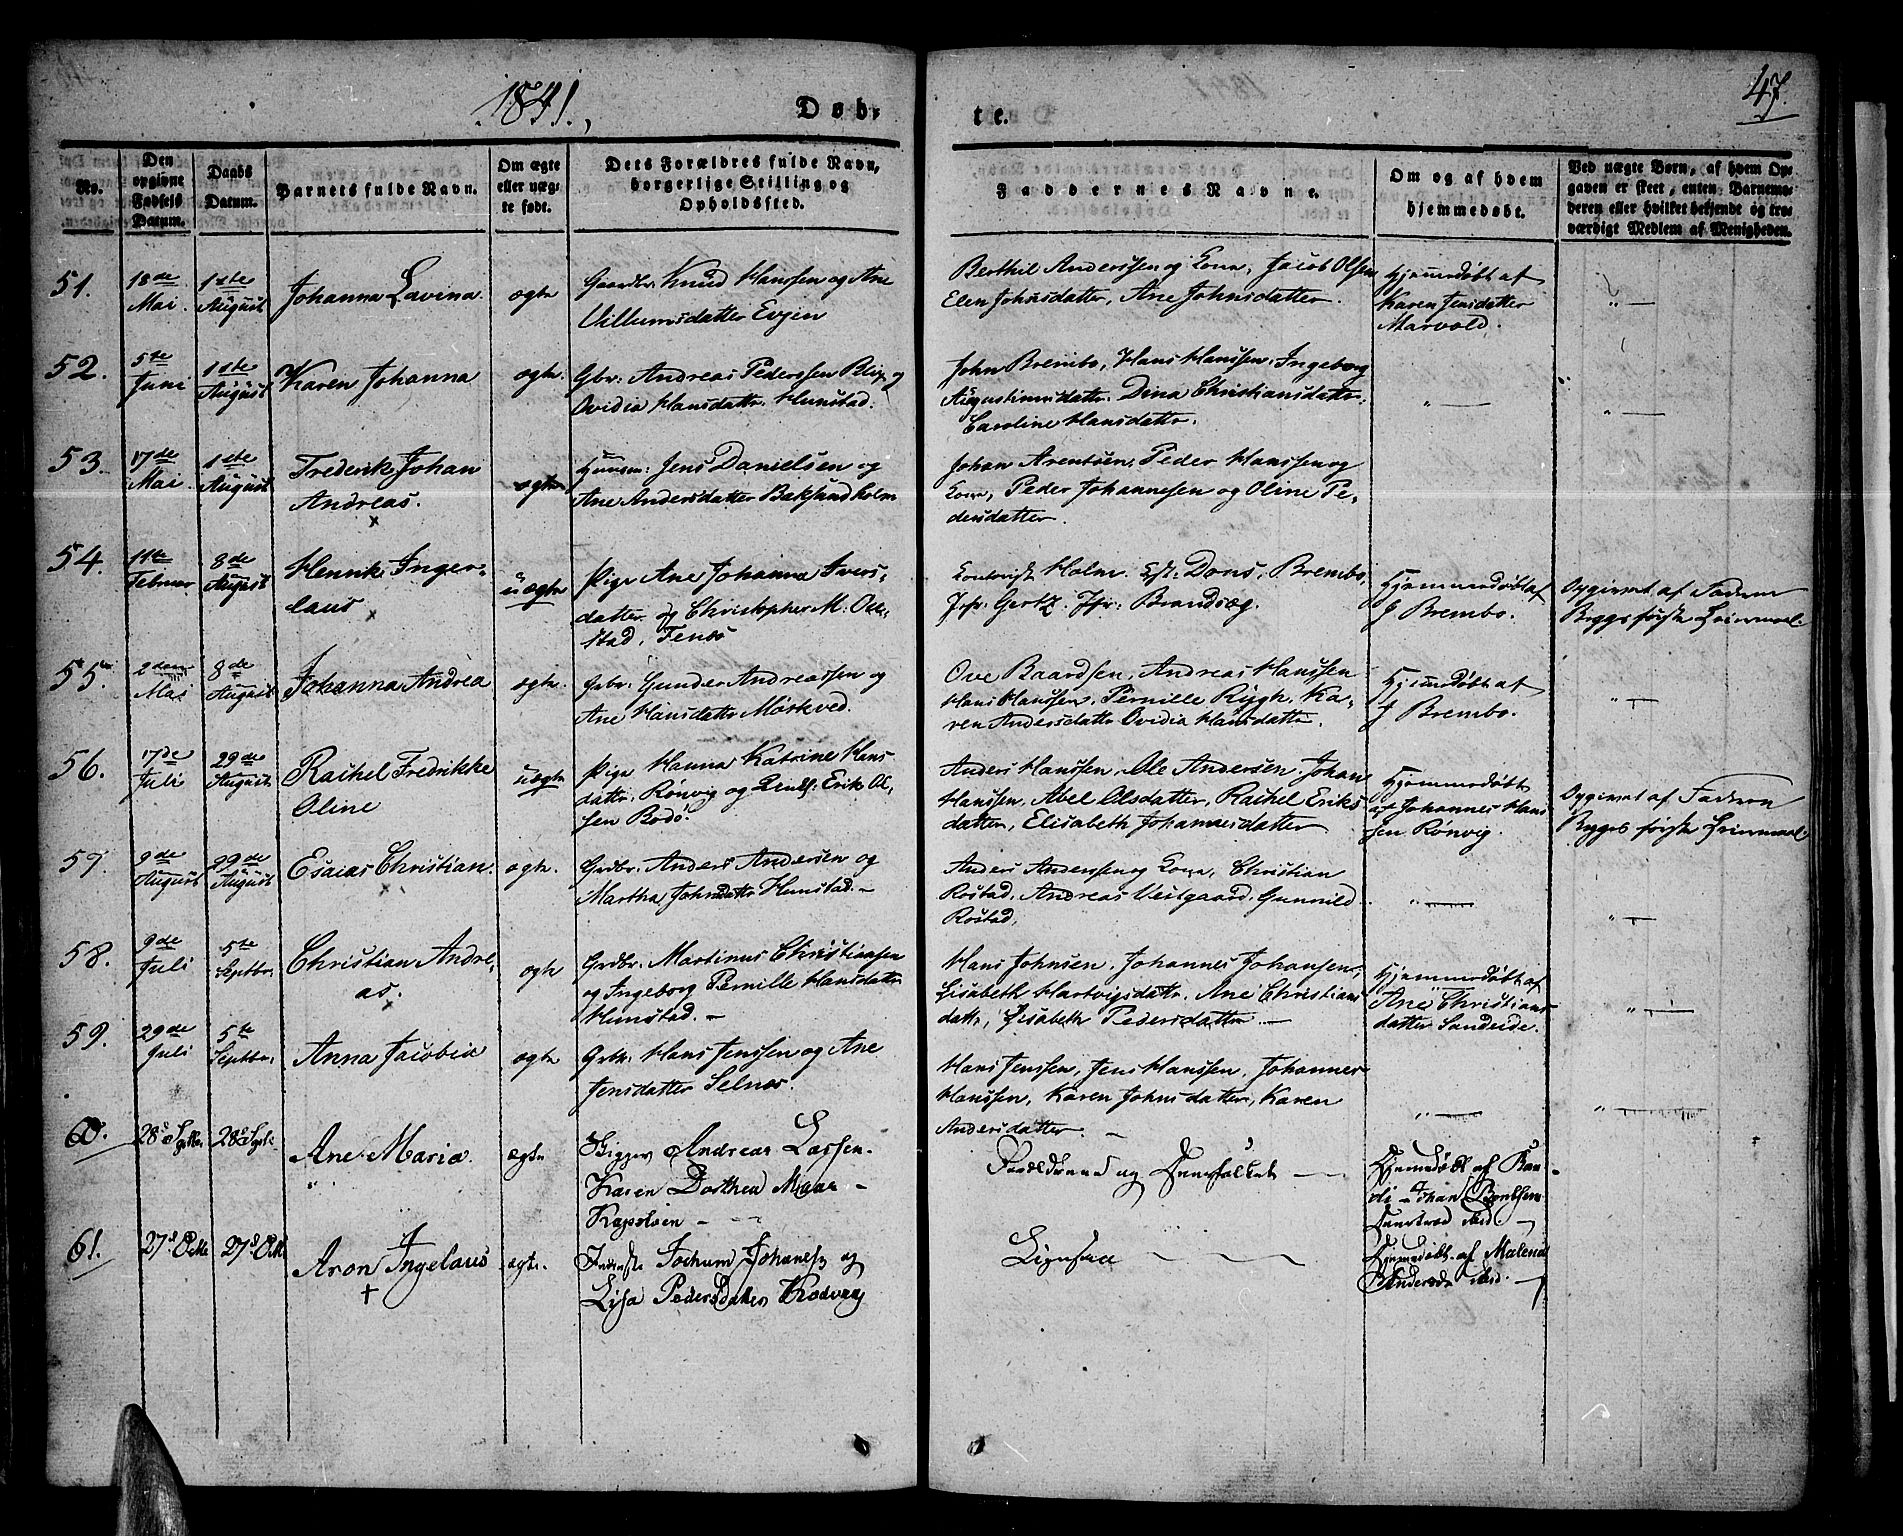 1841.
Døb-
te.
47.
No.
Den
opgivne
Fødsels
Datum.
Daabs
Datum.
Barnets fulde Navn.
Om ægte
eller uæg-
te født.
Dets Forældres fulde Navn,
borgerlige Stilling og
Opholdssted.
Faddernes Navne.
Om og af hvem
hjemmedøbt.
Ved uægte Børn, af hvem Op-
gaven er skeet, enten Barnemo-
deren eller hvilket bekjendt og tro-
værdigt Medlem af Menigheden.
51.
18de
Mai.
1ste
August
Johanna Lavina.
ægte
Gaardbr: Knud Hanssen og Ane
Villumsdatter Evjen
Berthil Anderssen og Kone, Jacob Olsen
Elen Johnsdatter, Ane Johnsdatter.
Hjemmedøbt af
Karen Jensdatter
Marvold.
52.
5te
Juni
1ste
August
Karen Johanna
ægte.
Gbr: Andreas Pederssen Blix og
Ovidia Hansdattr. Hunstad.
John Brembo, Hans Hanssen, Ingeborg
Augustinusdattr. Dina Christiansdattr.
Caroline Hansdattr.
53.
17de
Mai
1ste
August
Frederik Johan
Andreas.
ægte
Huusm: Jens Danielsen og
Ane Andersdatter Baksundholm
Johan Arentsen, Peder Hanssen og
Kone, Peder Johannesen og Oline Pe-
dersdatter.
54.
11te
Februar
8de
August
Henrik Inger-
laus
uægte
Pige Ane Johanna Ivers-
datter og Christopher M.
stad, Fenes
Holm. Dons, Brembo,
Jfr: Gertz. Jfr: Brandsæg.
Hjemmedøbt af
J Brembo.
Opgivet af Faderen
Begges første Leiermaal.
55.
2den
Mai
8de
August
Johanna Andrea
ægte.
Grbr: Gunder Andreassen og
Ane Hansdattr Mørkved.
Ove Baardsen, Andreas Hanssen
Hans Hanssen, Pernille Rygh, Ka-
ren Andersdattr Ovidia Hansdattr.
Hjemmedøbt af
J Brembo.
56.
17de
Juli
29de
August
Rachel Fredrikke
Oline
uægte
Pige Hanna Katrine Hans
dattr. Rønvig og Erik Ol-
sen Bodø.
Anders Hanssen, Ole Andersen, Johan
Hanssen, Abel Olsdatter, Rachel Eriks
datter, Elisabeth Johannesdatter
Hjemmedøbt
af Johannes Hans
sen Rønvig.
Opgivet af Faderen
Begges første Leiermaal
57.
9de
August
29de
August
Esaias Christian.
ægte.
Grdbr: Anders Andersen og
Martha Johnsdattr Hunstad.
Anders Anderssen og Kone, Christian
Rostad, Andreas Vestgaard, Gunnild
Rostad.
58.
9de
Juli
5te
Septbr.
Christian Andre-
as.
ægte
Grdbr: Martinus Christiansen
og Ingeborg Pernille Hansdattr
Hunstad.
Hans Johnsen, Johannes Johansen,
Lisabeth Hartvigsdattr. Ane Christians
dattr, Lisabeth Pedersdatter
Hjemmedøbt af
Ane Christians
datter Sandeide.
59.
29de
Juli
5te
Septbr.
Anna Jacobia
ægte
Grbr: Hans Jenssen og Ane
Jensdatter Selnes.
Hans Jenssen, Jens Hanssen, Johannes
Hanssen, Karen Johnsdatter, Karen
Andersdatter.
60.
Ane Maria.
ægte
Andreas Lassen.
Karen Dorthea
61.
27de Octbr
27de Octbr
Aron Ingelaus
ægte.
Jochum Johanss og
Lisa Pedersdatter
Ligesaa
Hjemmedøbt af
Johan
Hjemmedøbt af Malena
Andersdr ibid.